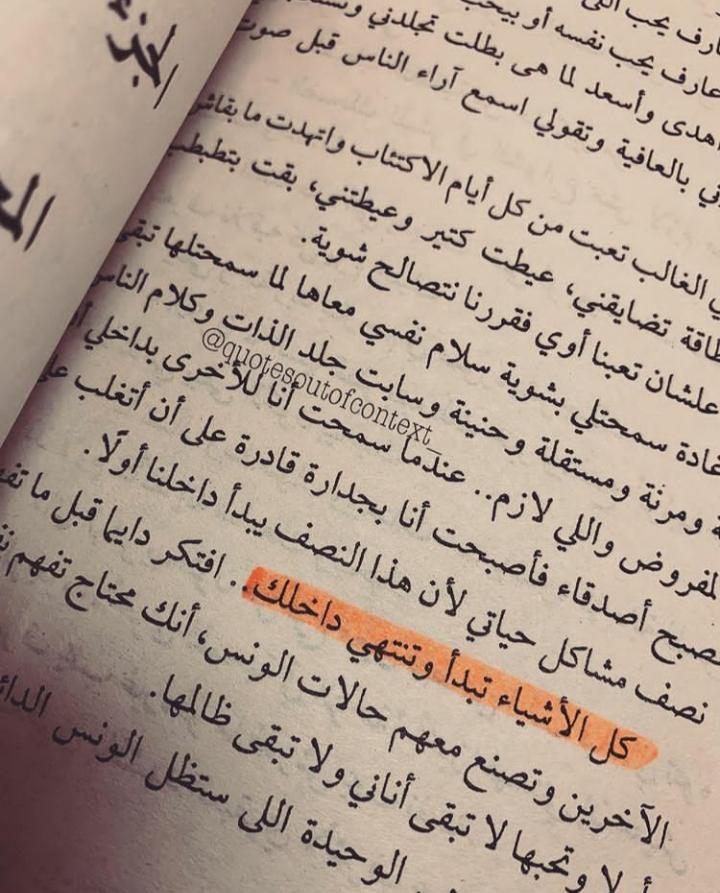 يحب
عارف يحب نفسه أو
اهدى وأسعد لما هى بطلت تجلدني
بالعافية وتقولي اسمع آراء الناس قبل صوت
الغالب تعبت من كل أيام الاكتئاب واتهدت ما بقاش
طاقة تضايقني، عيطت كتير وعيطتني، بقت بتطبطب
علشان تعبنا أوي فقررنا نتصالح شوية.
سمحتلي بشوية سلام نفسي معاها لما سمحتلها تبقى
ومرنة ومستقلة وحنينة وسابت جلد الذات وكلام الناس
المفروض واللي لازم.. عندما سمحت أنا للأخرى بداخلي
أصدقاء فأصبحت أنا بجدارة قادرة على أن أتغلب على
نصف مشاكل حياتي لأن هذا النصف يبدأ داخلنا أولًا.
كل الأشياء تبدأ وتنتهي داخلك.. افتكر دايما قبل ما
الآخرين وتصنع معهم حالات الونس، أنك محتاج تفهم
أولا وتحبها لا تبقى أناني ولا تبقى ظالمها.
الوحيدة اللى ستظل الونس
الجزء
@quotesoutofcontext_